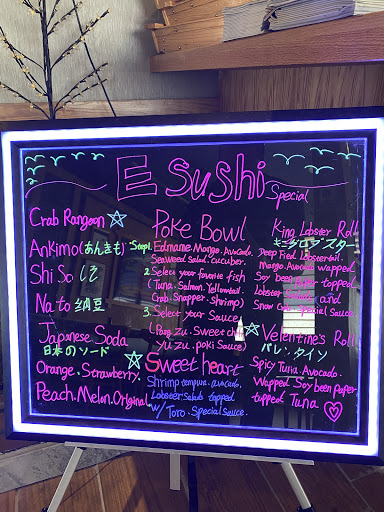 E Sushi Special
Crab Rangoon
Ankimo(あんきも)
Shi So しそ
Nato 納豆
Japanese Soda
日本のソード
Orange. Strawberry.
Peach. Melon. Original
Poke Bowl
Step1. Edname. Mango. Avocado.
Seaweed Salad. cucuber.
2. Select your favorite fish
(Tuna. Salmon. Yellowtail.
Crab. Snapper. Shrimp)
3. Select your Sauce
(Ponzu. Sweet chili
Yuzu. poki Sauce)
Sweet heart
Shrimp tempura. avocado.
Lobster Salad topped
w/ Toro. Special Sauce.
King Lobster Roll
Deep Fied Lobster tail.
Mango. Avocado wapped
Soy been Paper topped
Lobster Salad and
Snow Crab special Sauce
Velentine's Roll
バレ.タイン
Spicy Tuna. Avocado.
Wapped Soy been paper
topped Tuna